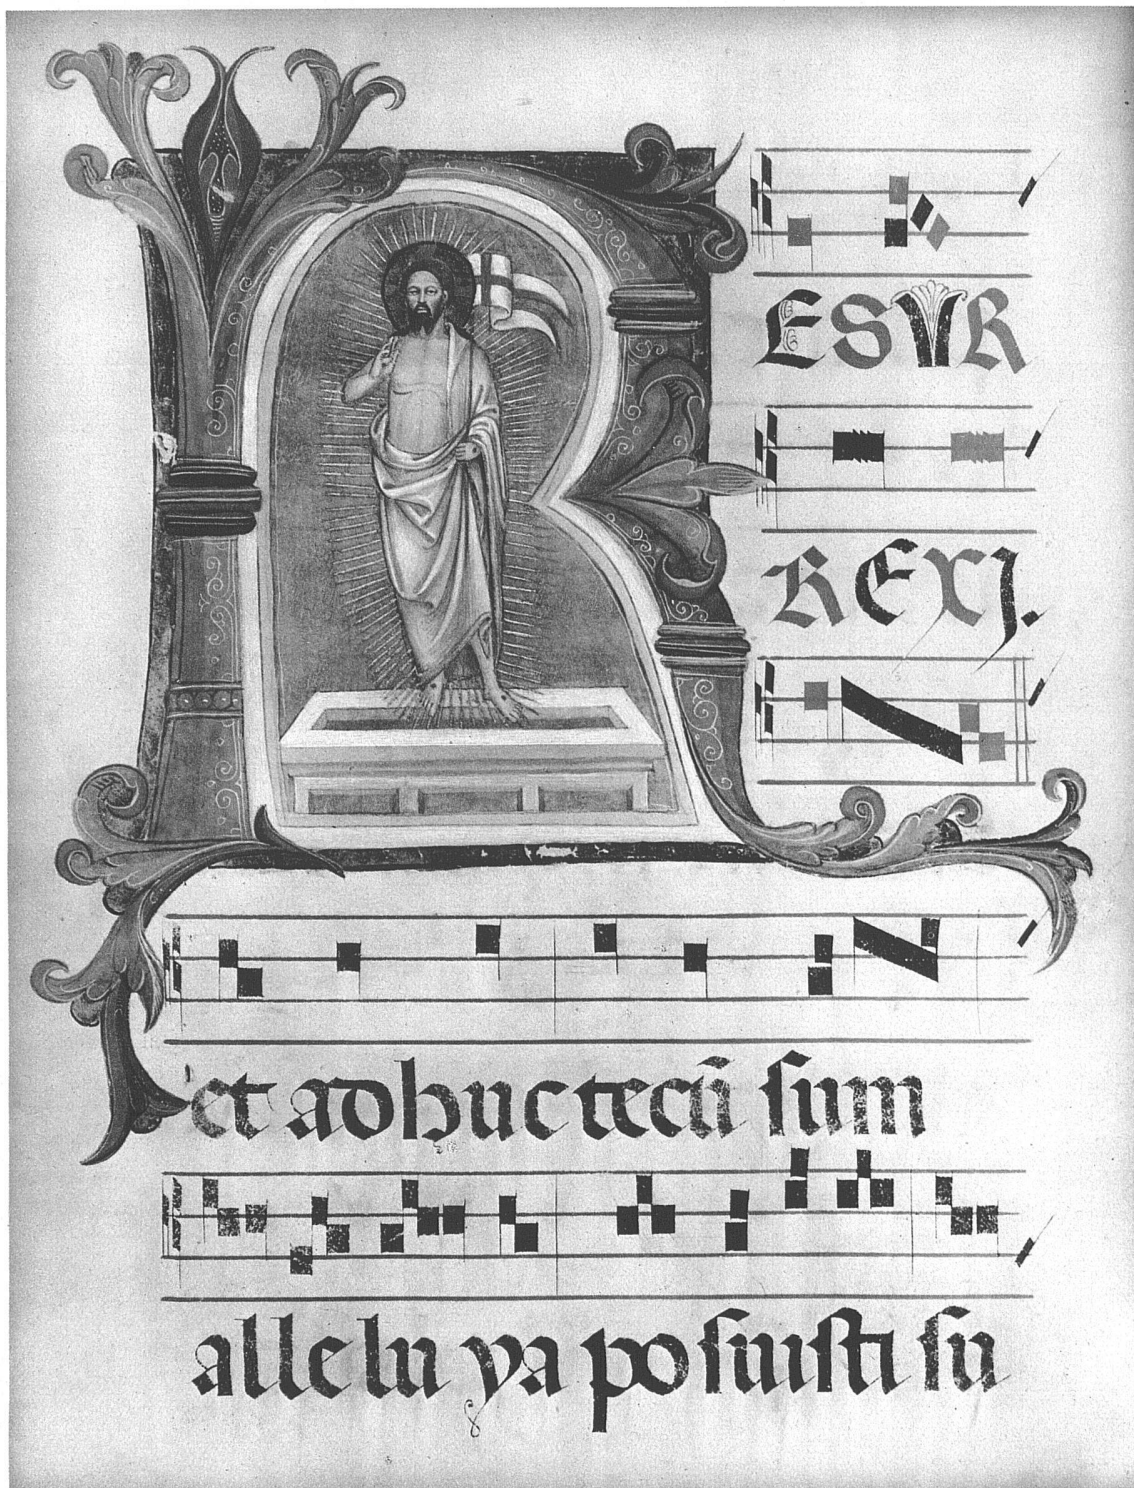 R
ESVR
REXJ.
et adhuc tecū sum
alle lu ya po suisti su